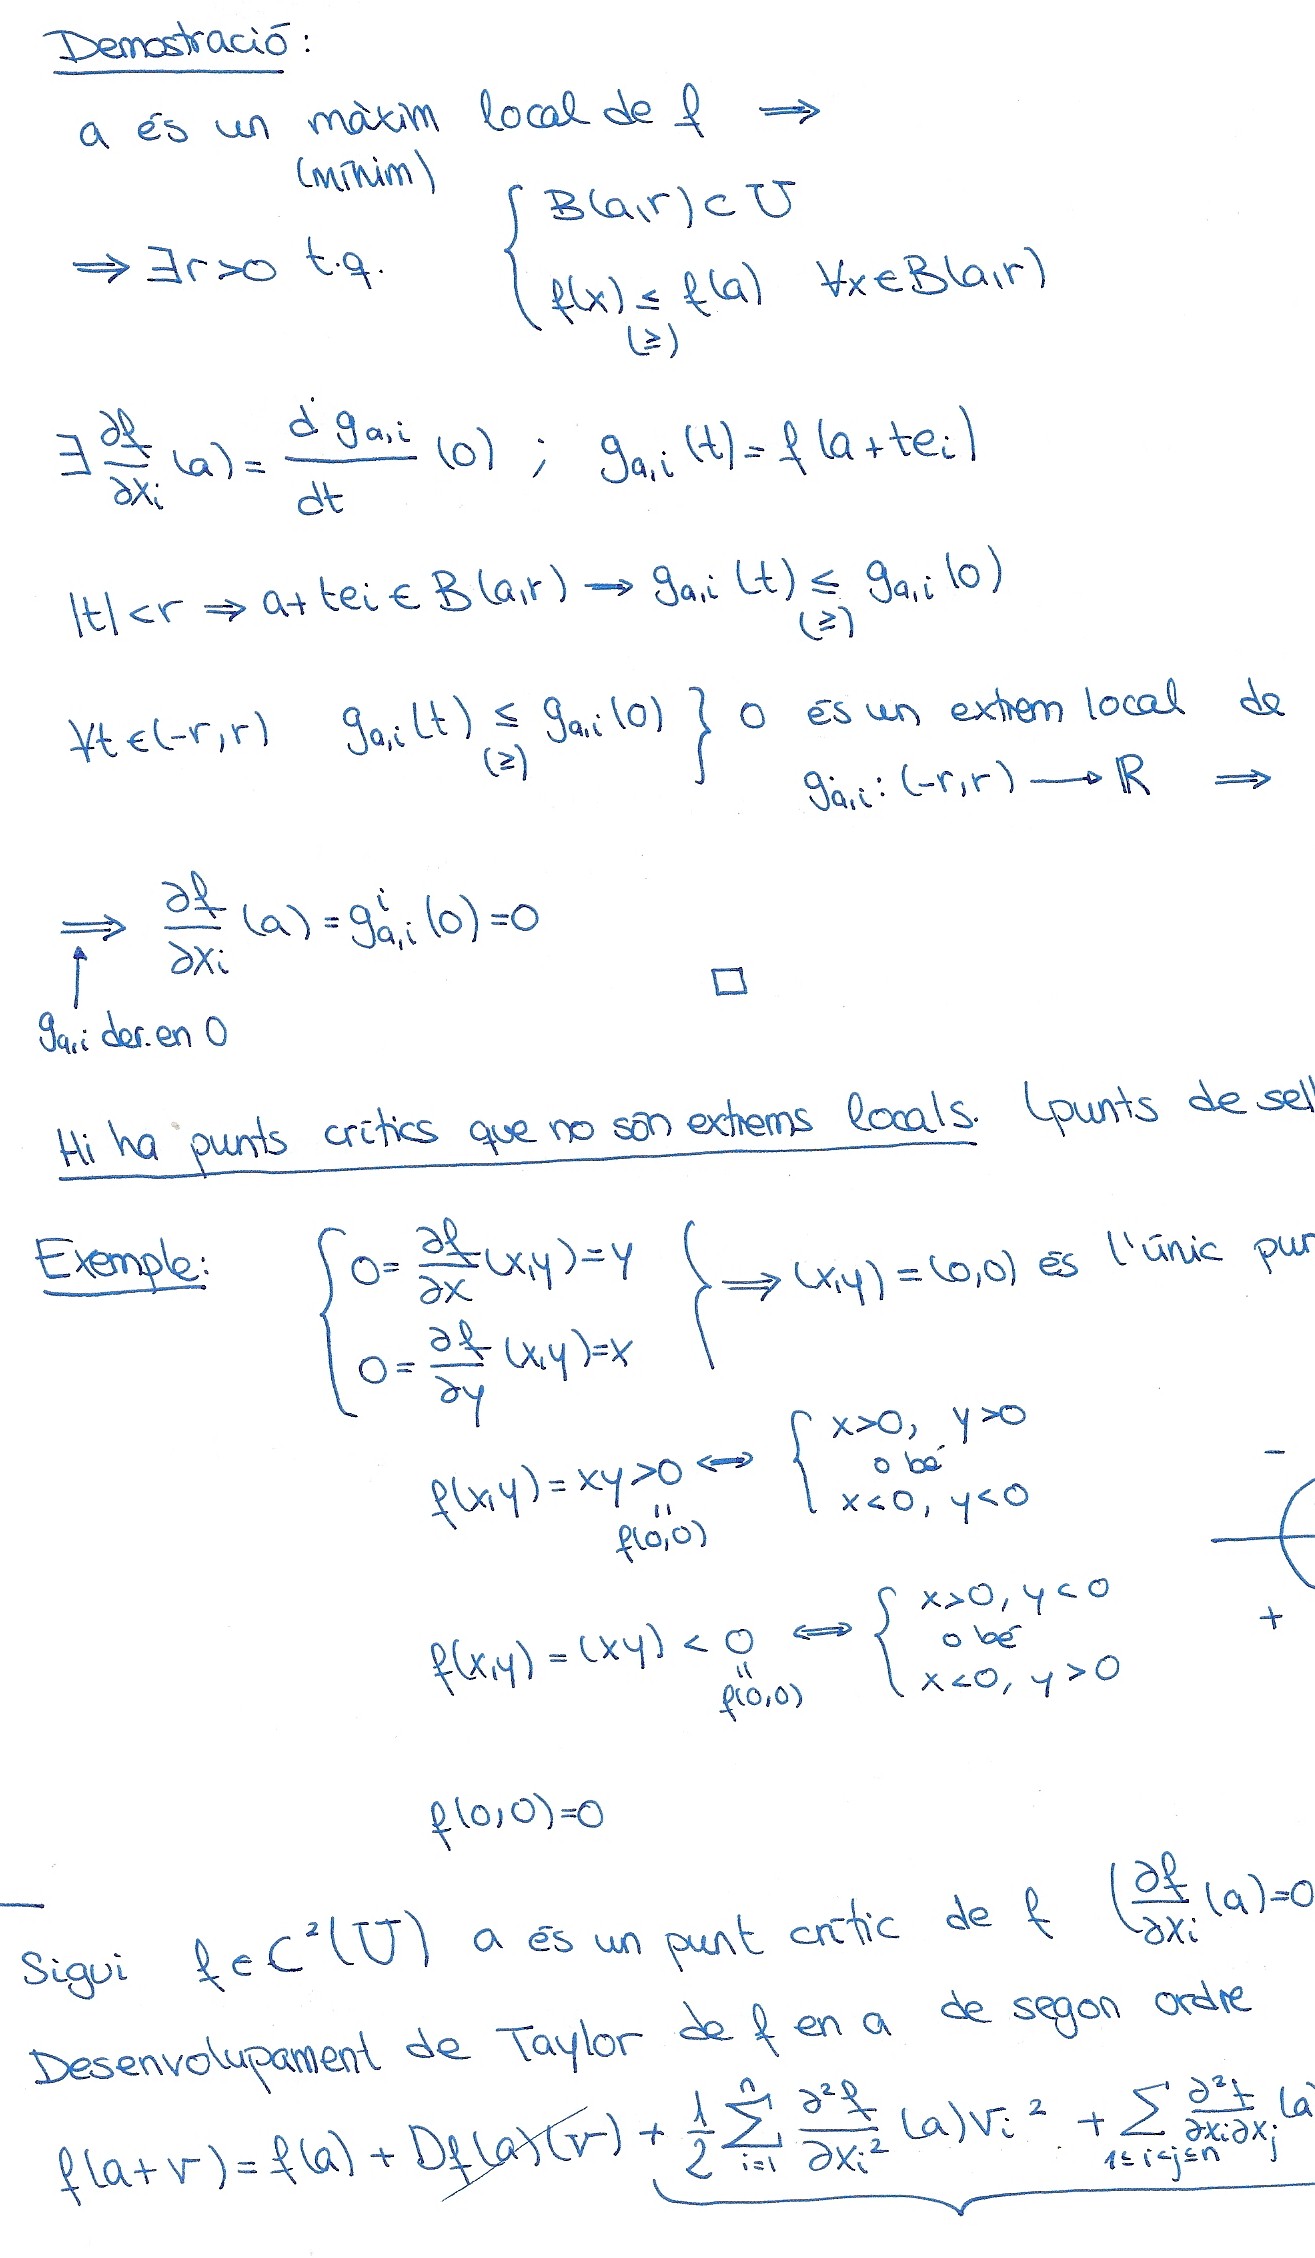 Demostració:
a és un màxim local de f ⇒
(mínim)
⇒ ∃r>0 t.q. { B(a,r) ⊂ U
f(x) ≤ f(a) ∀x∈B(a,r)
(≥)
∃ ∂f/∂xi (a) = d ga,i/dt (0) ; ga,i (t) = f(a+tei)
|t|<r ⇒ a+tei ∈ B(a,r) → ga,i (t) ≤ ga,i (0)
(≥)
∀t∈(-r,r) ga,i (t) ≤ ga,i (0) } 0 és un extrem local de
(≥) ga,i : (-r,r) → ℝ ⇒
⇒ ∂f/∂xi (a) = g'a,i (0) = 0
□
↑
ga,i der. en 0
Hi ha punts crítics que no són extrems locals. (punts de sell
Exemple: { 0 = ∂f/∂x (x,y) = y } ⇒ (x,y) = (0,0) és l'únic
0 = ∂f/∂y (x,y) = x
f(x,y) = xy > 0 ⟺ { x>0, y>0
o bé
x<0, y<0
=
f(0,0)
-
f(x,y) = (xy) < 0 ⟺ { x>0, y<0
o bé
x<0, y>0
=
f(0,0)
+
f(0,0)=0
Sigui f∈C²(U) a és un punt crític de f (∂f/∂xi (a)=0
Desenvolupament de Taylor de f en a de segon ordre
f(a+v) = f(a) + Df(a)(v) + 1/2 Σ_{i=1}^{n} ∂²f/∂xi² (a)vi² + Σ_{1≤i<j≤n} ∂²f/∂xi∂xj (a)